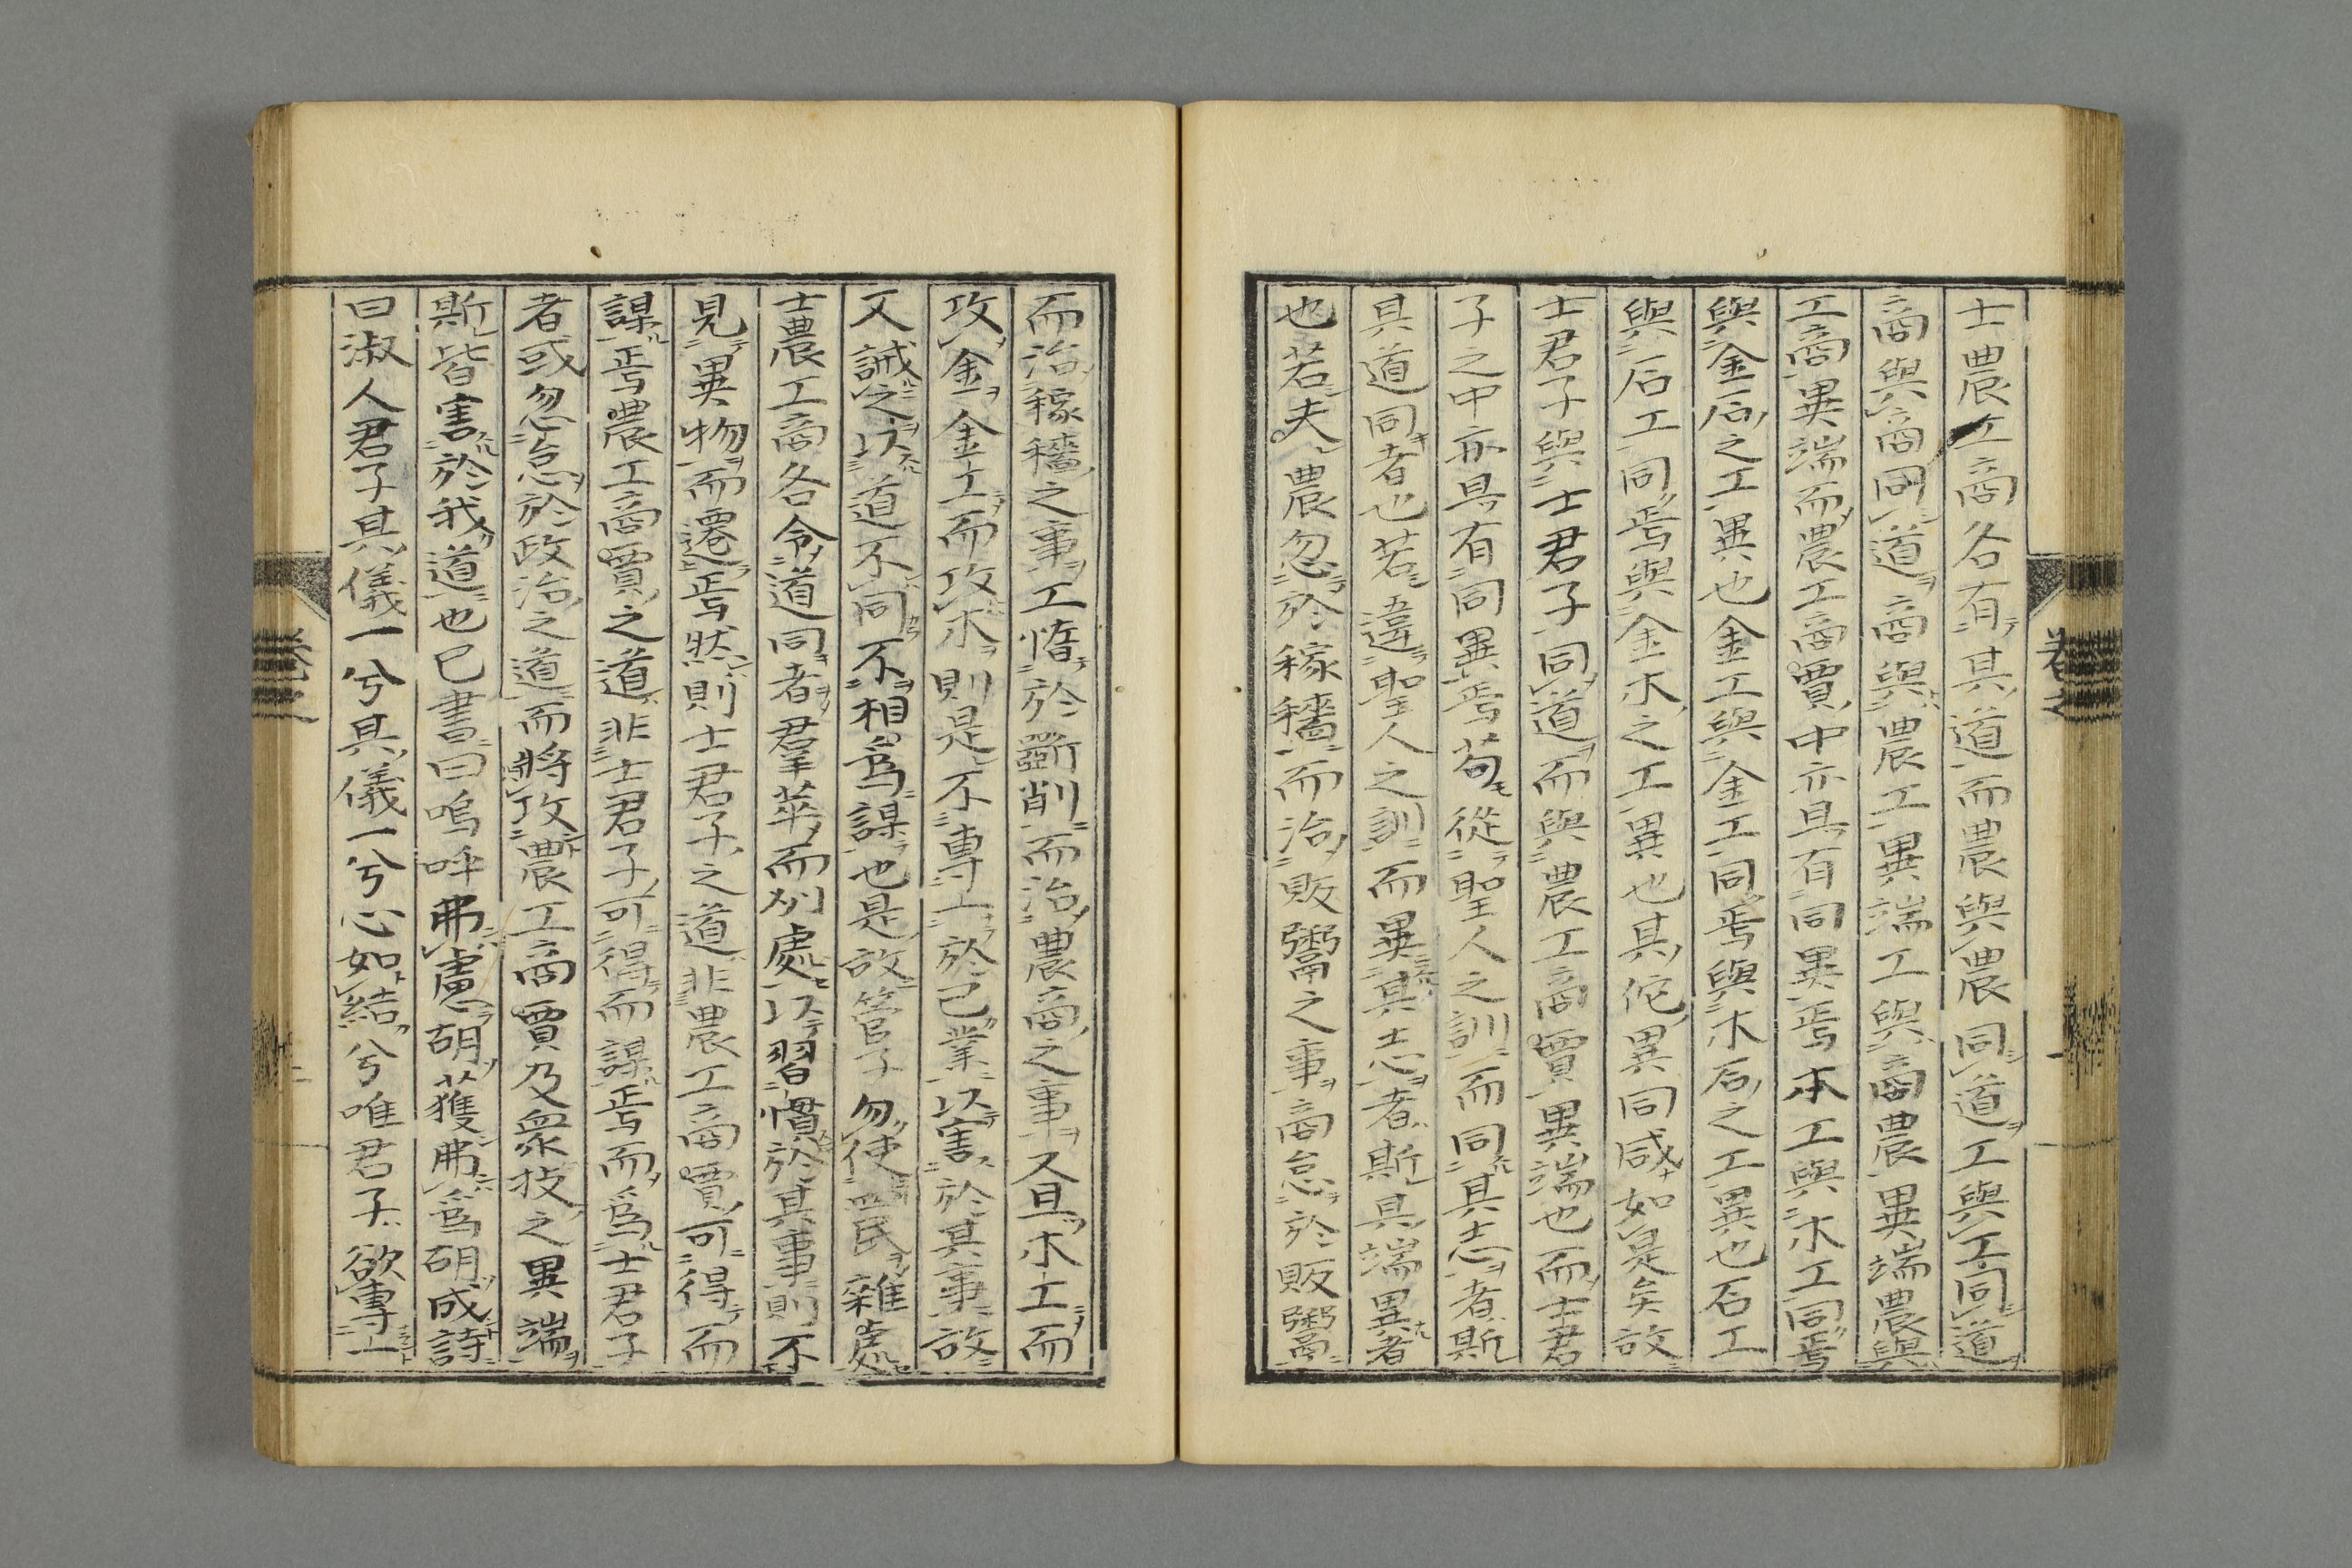 士農工商各有其道而農與農同道工與工同道
商與商同道商與農工異端工與商農異端農與
工商異端而農工商賈中亦且有同異焉木工與木工同焉
與金石之工異也金工與金工同焉與木石之工異也石工
與石工同焉與金木之工異也其佗異同咸如是矣故
士君子與士君子同道而與農工商賈異端也而士君
子之中亦且有同異焉苟從聖人之訓而同其志者斯
其道同者也若違聖人之訓而異其志者斯其端異者
也若夫農忽於稼穡而治販鬻之事商怠於販鬻
而治稼穡之事工惰於斲削而治農商之事又且木工而
攻金金工而攻木則是不專工於己業以害於其事故
又誡之以道不同不相爲謀也是故管子勿使四民雜處
士農工商各令道同者羣萃而列處以習慣於其事則不
見異物而遷焉然則士君子之道非農工商賈可得而
謀焉農工商賈之道非士君子可得而謀焉而爲士君子
者或忽怠於政治之道而將攻農工商賈乃衆技之異端
斯皆害於我道也已書曰嗚呼弗慮胡獲弗爲胡成詩
曰淑人君子其儀一兮其儀一兮心如結兮唯君子欲專一
卷之
卷之